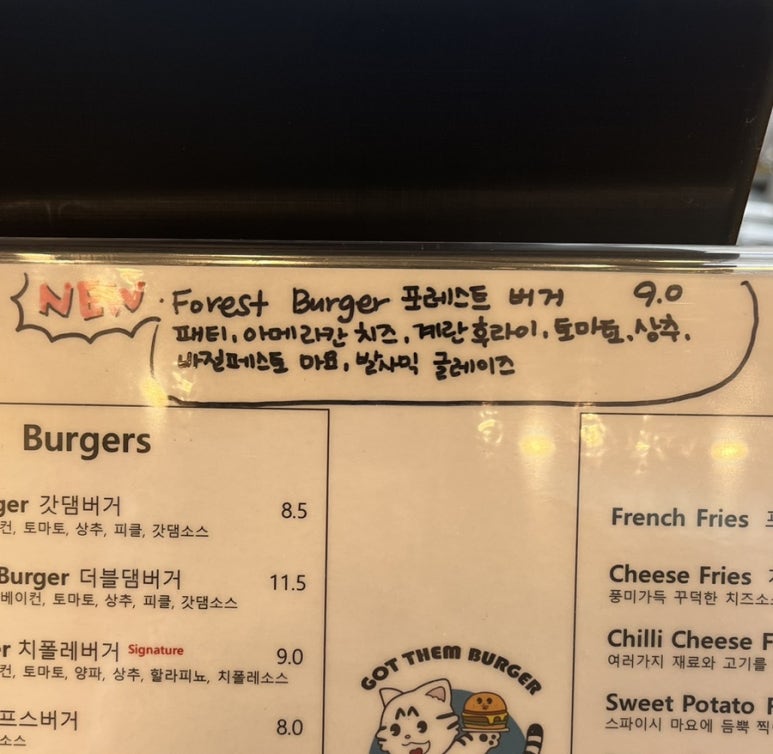 NEW
Forest Burger 포레스트 버거 9.0
패티, 아메리칸 치즈, 계란후라이, 토마토, 상추,
바질페스토 마요, 발사믹 글레이즈
Burgers
갓댐버거 8.5
토마토, 상추, 피클, 갓댐소스
Burger 더블댐버거 11.5
베이컨, 토마토, 상추, 피클, 갓댐소스
치폴레버거 Signature 9.0
토마토, 양파, 상추, 할라피뇨, 치폴레소스
프스버거 8.0
소스
GOT THEM BURGER
French Fries
Cheese Fries
풍미가득 꾸덕한 치즈소스
Chilli Cheese
여러가지 재료와 고기를
Sweet Potato
스파이시 마요에 듬뿍